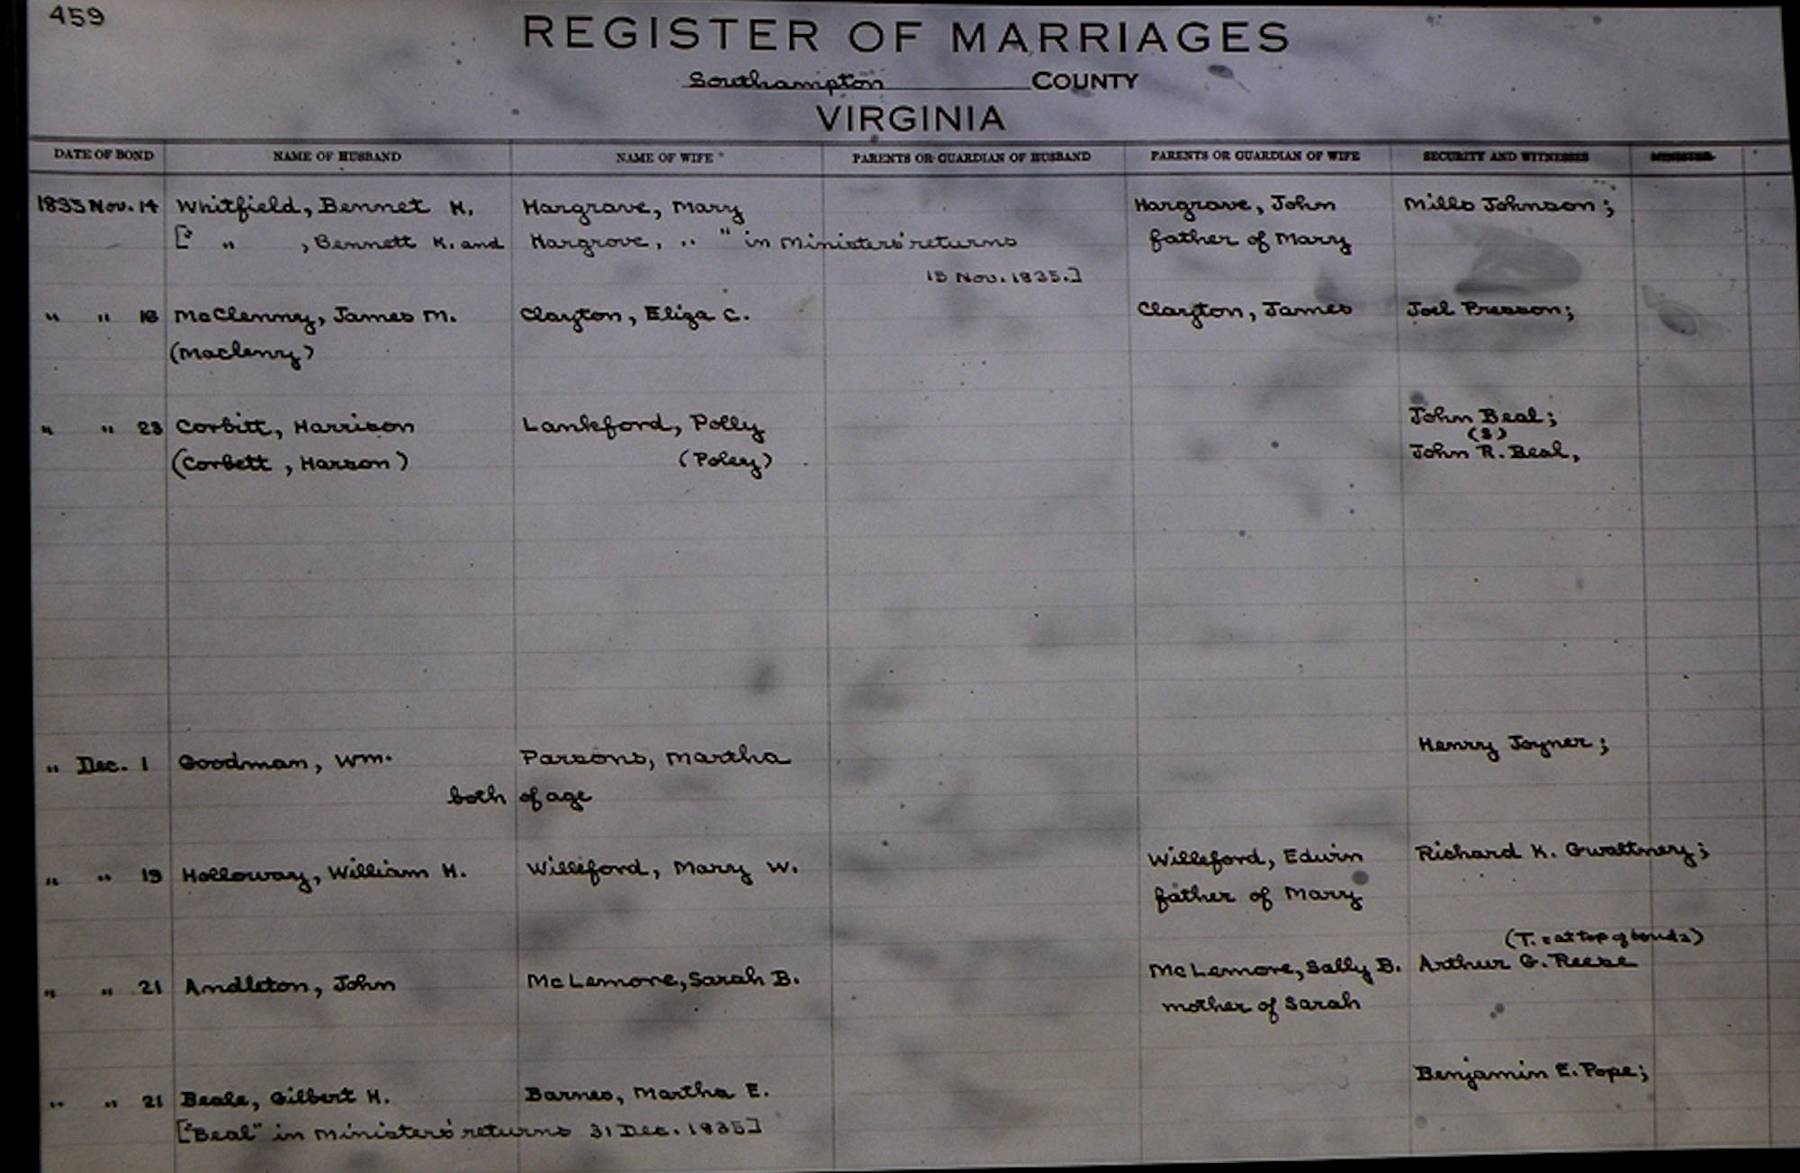 459
REGISTER OF MARRIAGES
Southampton COUNTY
VIRGINIA
DATE OF BOND NAME OF HUSBAND NAME OF WIFE PARENTS OR GUARDIAN OF HUSBAND PARENTS OR GUARDIAN OF WIFE SECURITY AND WITNESSES MINISTER
1835 Nov. 14 Whitfield, Bennet H. Hargrave, Mary Hargrave, John Mills Johnson;
[" " , Bennett K. and Hargrove, " " in Ministers' returns father of Mary
15 Nov. 1835.]
" " 16 McClenny, James M. Clayton, Eliza C. Clayton, James Joel Presson;
(Maclenny)
" " 23 Corbitt, Harrison Lankford, Polly John Beal;
(S)
(Corbett, Harson) (Poley) John R. Beal,
" Dec. 1 Goodman, Wm. Parsons, Martha Henry Joyner;
both of age
" " 19 Holloway, William H. Williford, Mary W. Willeford, Edwin Richard K. Gwaltney;
father of Mary
(T. at top of bonds)
" " 21 Andleton, John McLemore, Sarah B. McLemore, Sally B. Arthur G. Reese
mother of Sarah
" " 21 Beale, Gilbert H. Barnes, Martha E. Benjamin E. Pope;
["Beal" in Ministers' returns 31 Dec. 1835]